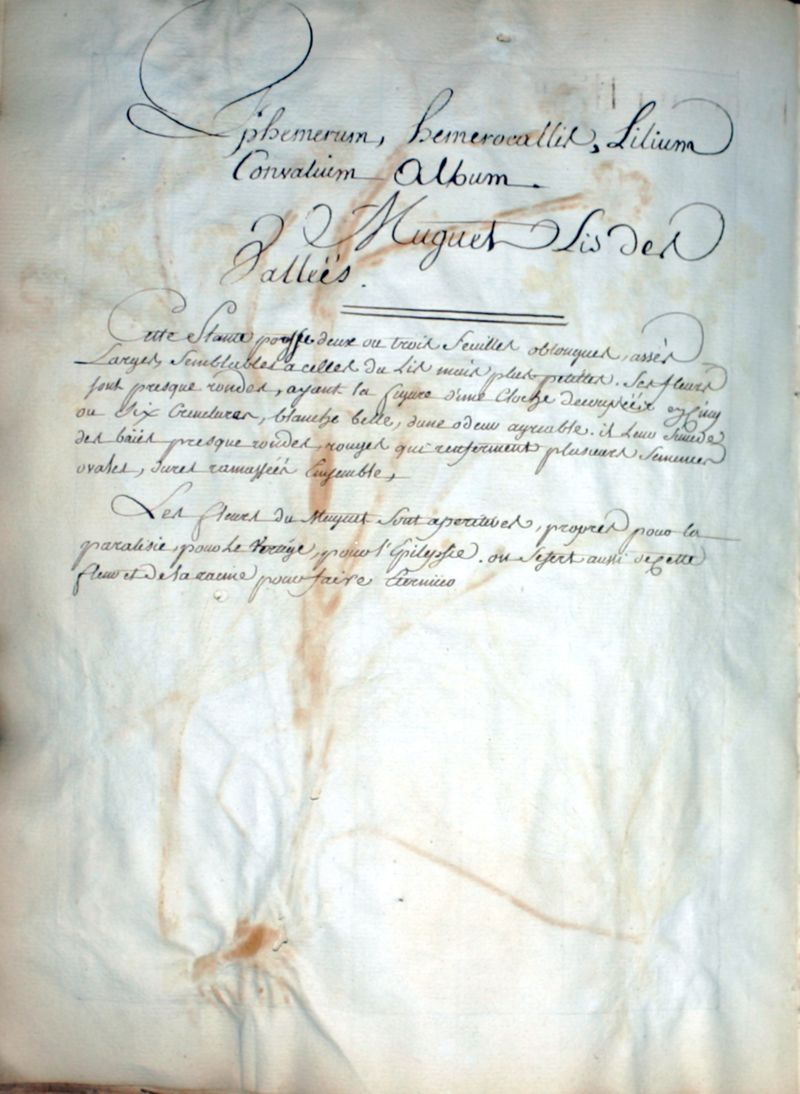 Ephemerum, hemerocallis, Lilium
Convalium album.
Muguet Lis des
Valleës.
Cette Plante pousse deux ou trois feuilles oblongues, assés
Larges, Semblables a celles du Lis mais plus petittes. Ses fleurs
sont presque rondes, ayant la figure d'une Cloche decoupéés en Cinq
ou Six Crenelures, blanche belle, dune odeur agreable. il Leur Suuede
des baiës presque rondes, rouges qui renferment plusieurs Semences
ovales, dures ramasséés Ensemble,
Les fleurs du Muguet Sont aperitives, propres pour la
paralisie, pour Le Vertige, pour l'Epilepsie. on Se sert aussi de Cette
fleur et de la racine pour faire Eternüer